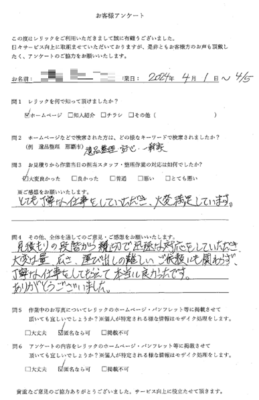 お客様アンケート
この度はレリックをご利用いただきまして誠に有難うございました。
日々サービス向上に取組ませていただいておりますが、是非ともお客様方のお声も頂戴し
たく、アンケートのご協力をお願いいたします。
お名前： 様 2024年 4月 1日 ～ 4/5
問1 レリックを何で知って頂けましたか？
☑ホームページ □知人紹介 □チラシ □その他（ ）
問2 ホームページなどで検索された方は、どの様なキーワードで検索されましたか？
（例 遺品整理 那覇市） 遺品整理 一軒家
問3 お見積りから作業当日の担当スタッフ・整理作業の対応は如何でしたか？
☑大変良かった □良かった □普通 □悪い □とても悪い
※ご感想をお願いいたします。
とても丁寧な仕事をしていただき、大変満足しています。
問4 その他、全体を通してのご意見・ご感想をお願いいたします。
見積もりの段階から親切で迅速な対応をしていただき
大変な量、広さ、運び出しの難しい ご依頼にも関わらず
丁寧な仕事をしてもらえて本当に良かったです。
ありがとうございました。
問5 作業中のお写真についてレリックのホームページ・パンフレット等に掲載させて
頂いても宜しいでしょうか？※個人が特定される様な情報はモザイク処理をします。
□大丈夫 ☑匿名なら可 □掲載不可
問6 アンケートの内容をレリックのホームページ・パンフレット等に掲載させて
頂いても宜しいでしょうか？※個人が特定される様な情報はモザイク処理をします。
□大丈夫 ☑匿名なら可 □掲載不可
貴重なご意見のご協力ありがとうございました。サービス向上に役立たせて頂きます。